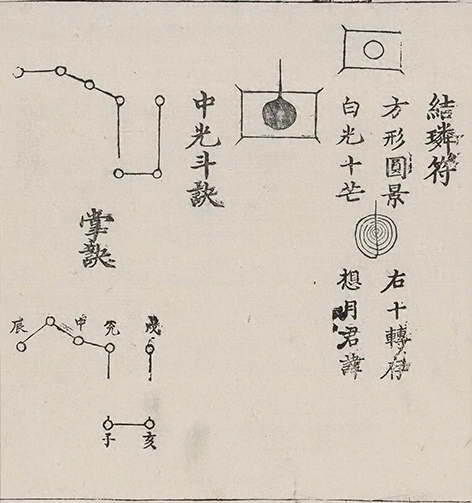 結璘符
方形圓景
白光十芒
右十轉存
想月君諱
中光斗訣
掌訣
戌
申
辰
亥
子